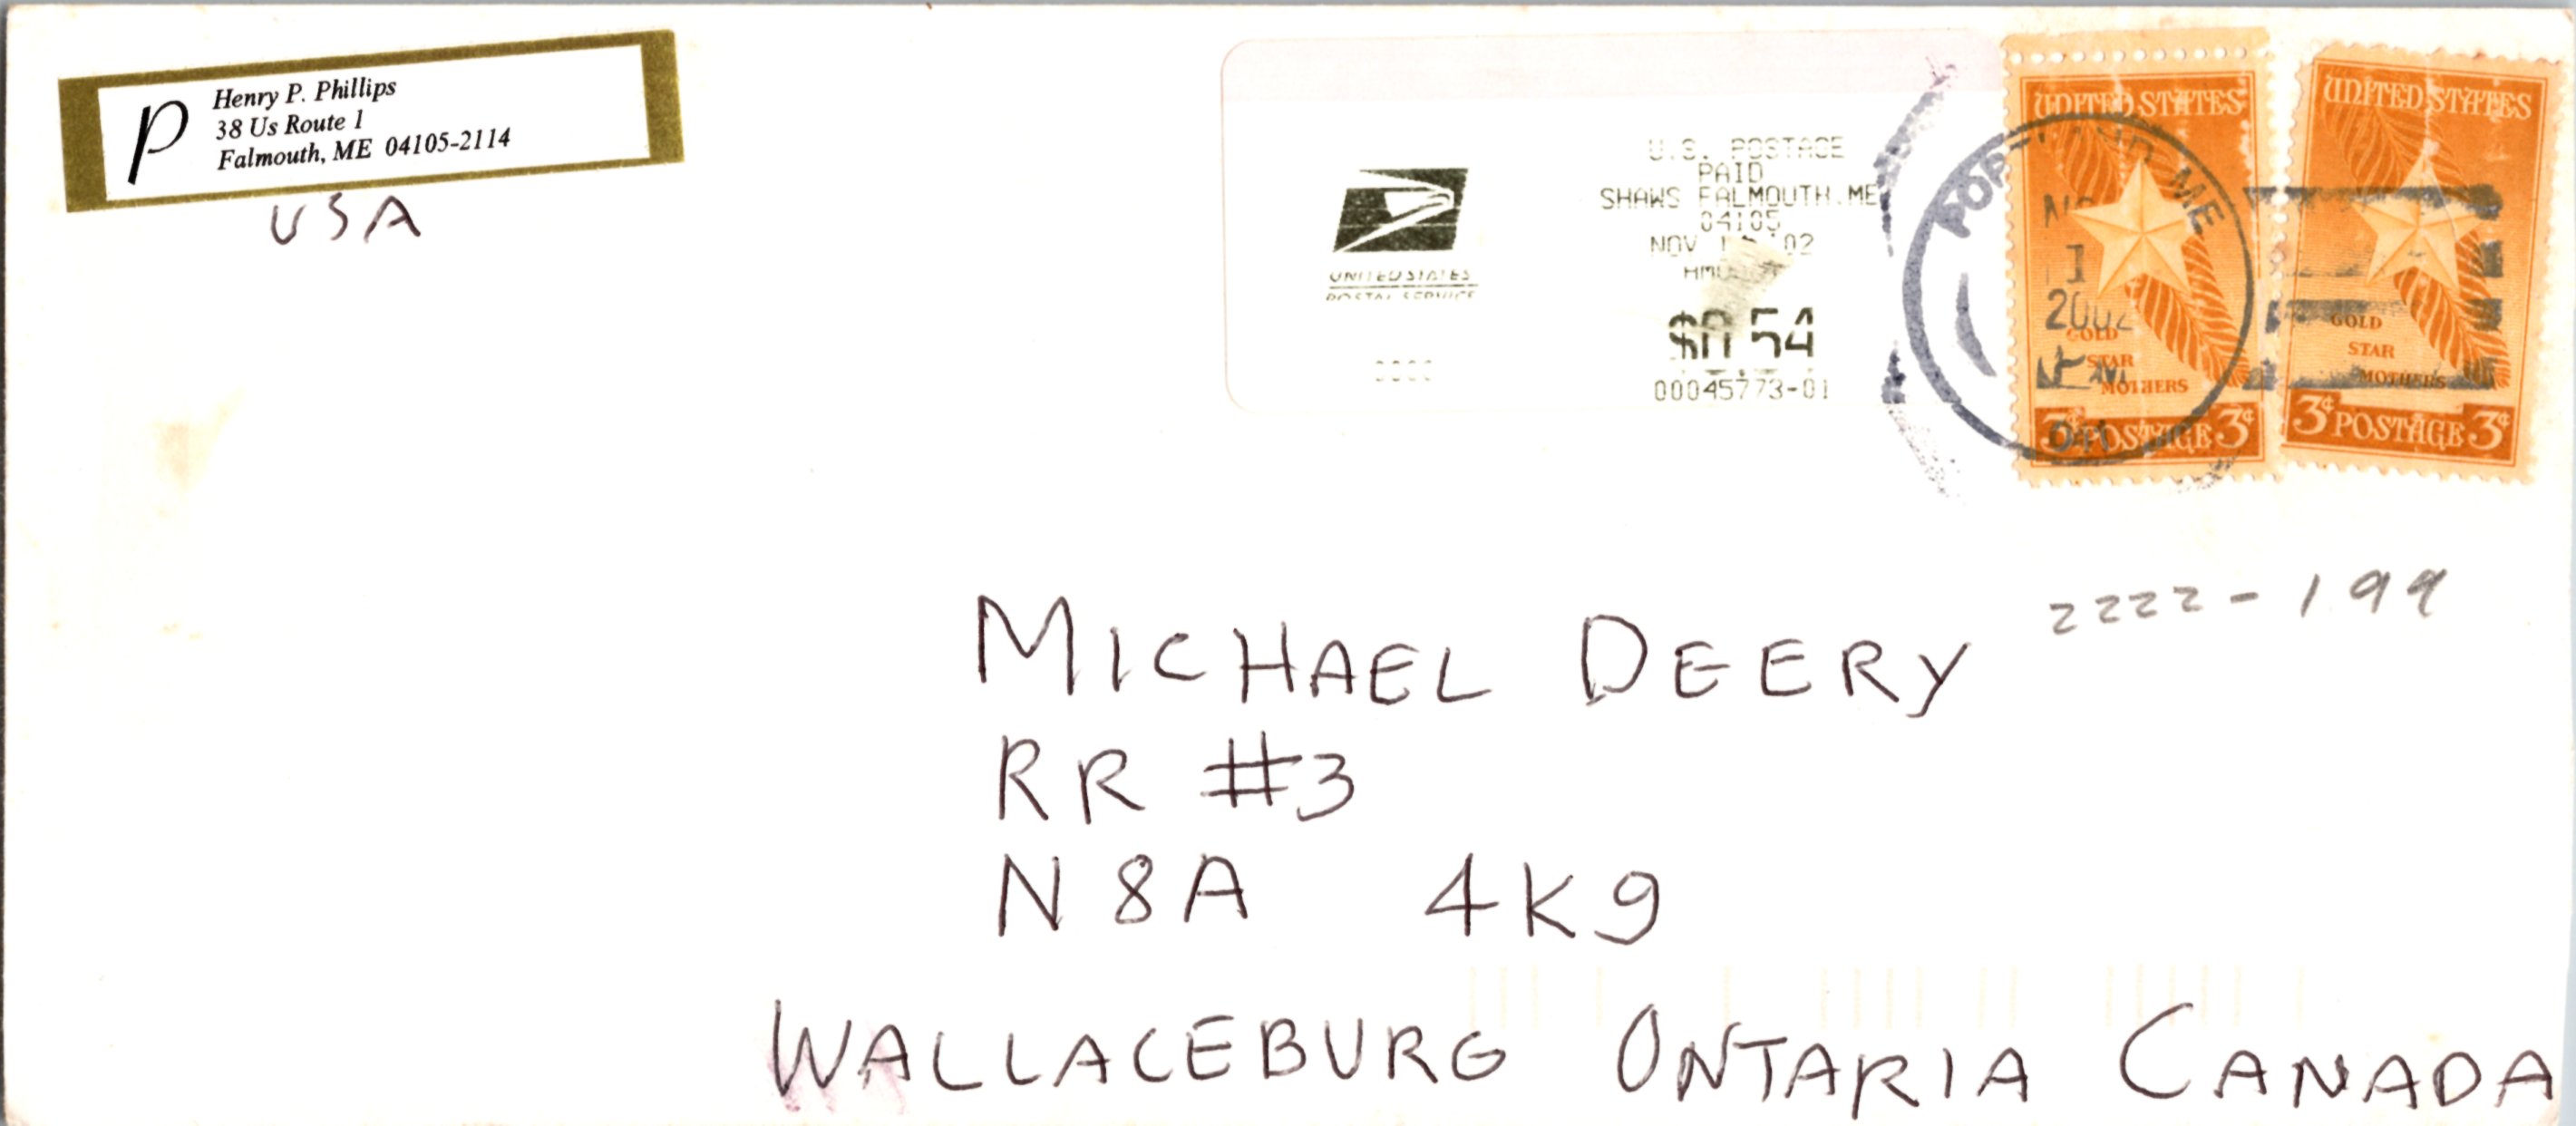 P
Henry P. Phillips
38 Us Route 1
Falmouth, ME 04105-2114
USA
UNITED STATES
POSTAL SERVICE
0000
U.S. POSTAGE
PAID
SHAWS FALMOUTH.ME
04105
NOV '02
$0.54
00045773-01
ME
2002
041
UNITED STATES
GOLD
STAR
MOTHERS
3¢ POSTAGE 3¢
UNITED STATES
GOLD
STAR
MOTHERS
3¢ POSTAGE 3¢
2222-199
MICHAEL DEERY
RR #3
N8A 4K9
WALLACEBURG ONTARIA CANADA